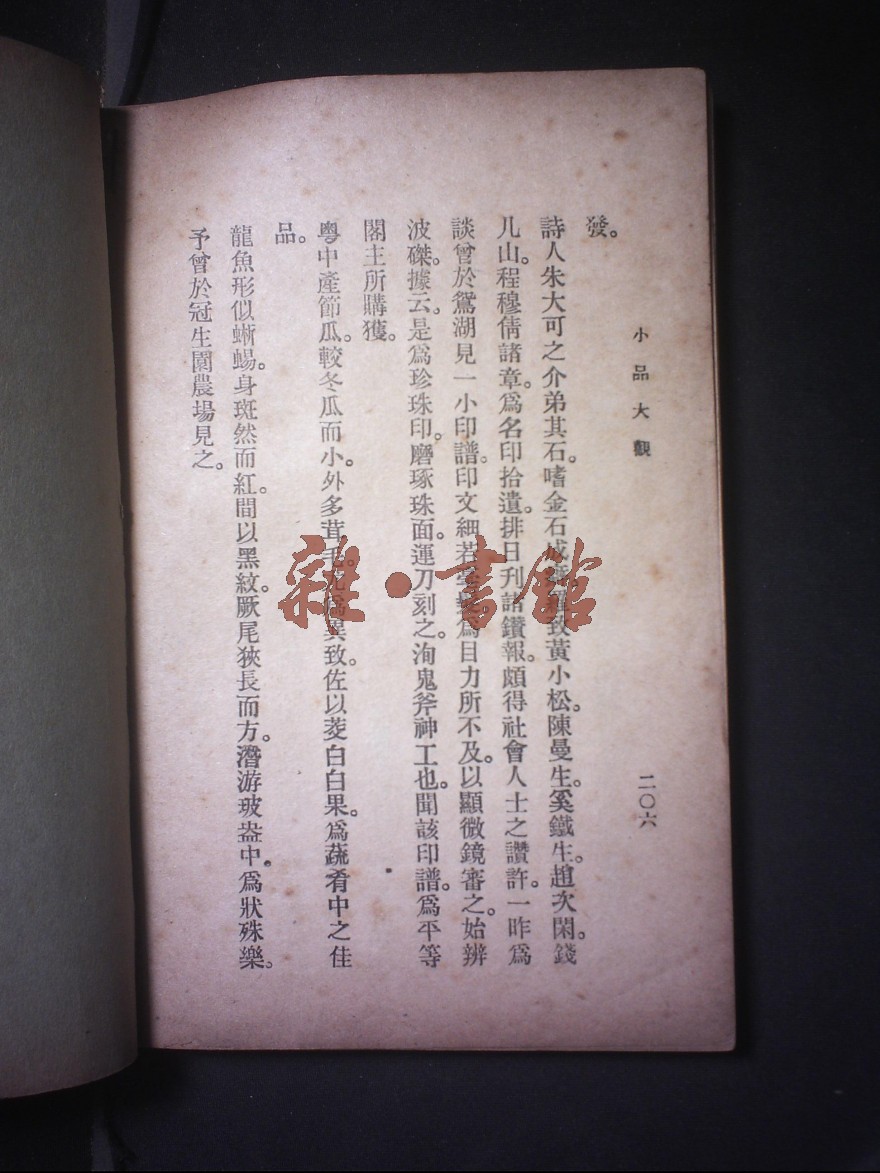 小品大觀
二〇六
發。
詩人朱大可之介弟其石。嗜金石成癖。羅致黃小松。陳曼生。奚鐵生。趙次閑。錢
几山。程穆倩諸章。爲名印拾遺。排日刋諸鑽報。頗得社會人士之讚許。一昨爲
談曾於鴛湖見一小印譜。印文細若爲目力所不及。以顯微鏡審之。始辨
波磔。據云。是爲珍珠印。磨琢珠面。運刀刻之。洵鬼斧神工也。聞該印譜。爲平等
閣主所購獲。
粵中產節瓜。較冬瓜而小。外多茸毛。尤爲異致。佐以菱白白果。爲蔬肴中之佳
品。
龍魚形似蜥蜴。身斑然而紅。間以黑紋。厥尾狹長而方。潛游玻盎中。爲狀殊樂。
予曾於冠生園農場見之。
雜·書館